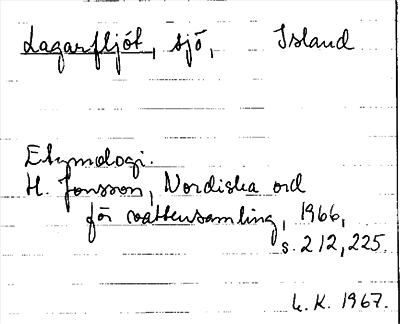 Lagarfljót, sjö, Island
Etymologi.
H. Jonsson, Nordiska ord
för vattensamling, 1966,
s. 212, 225.
L. K. 1967.